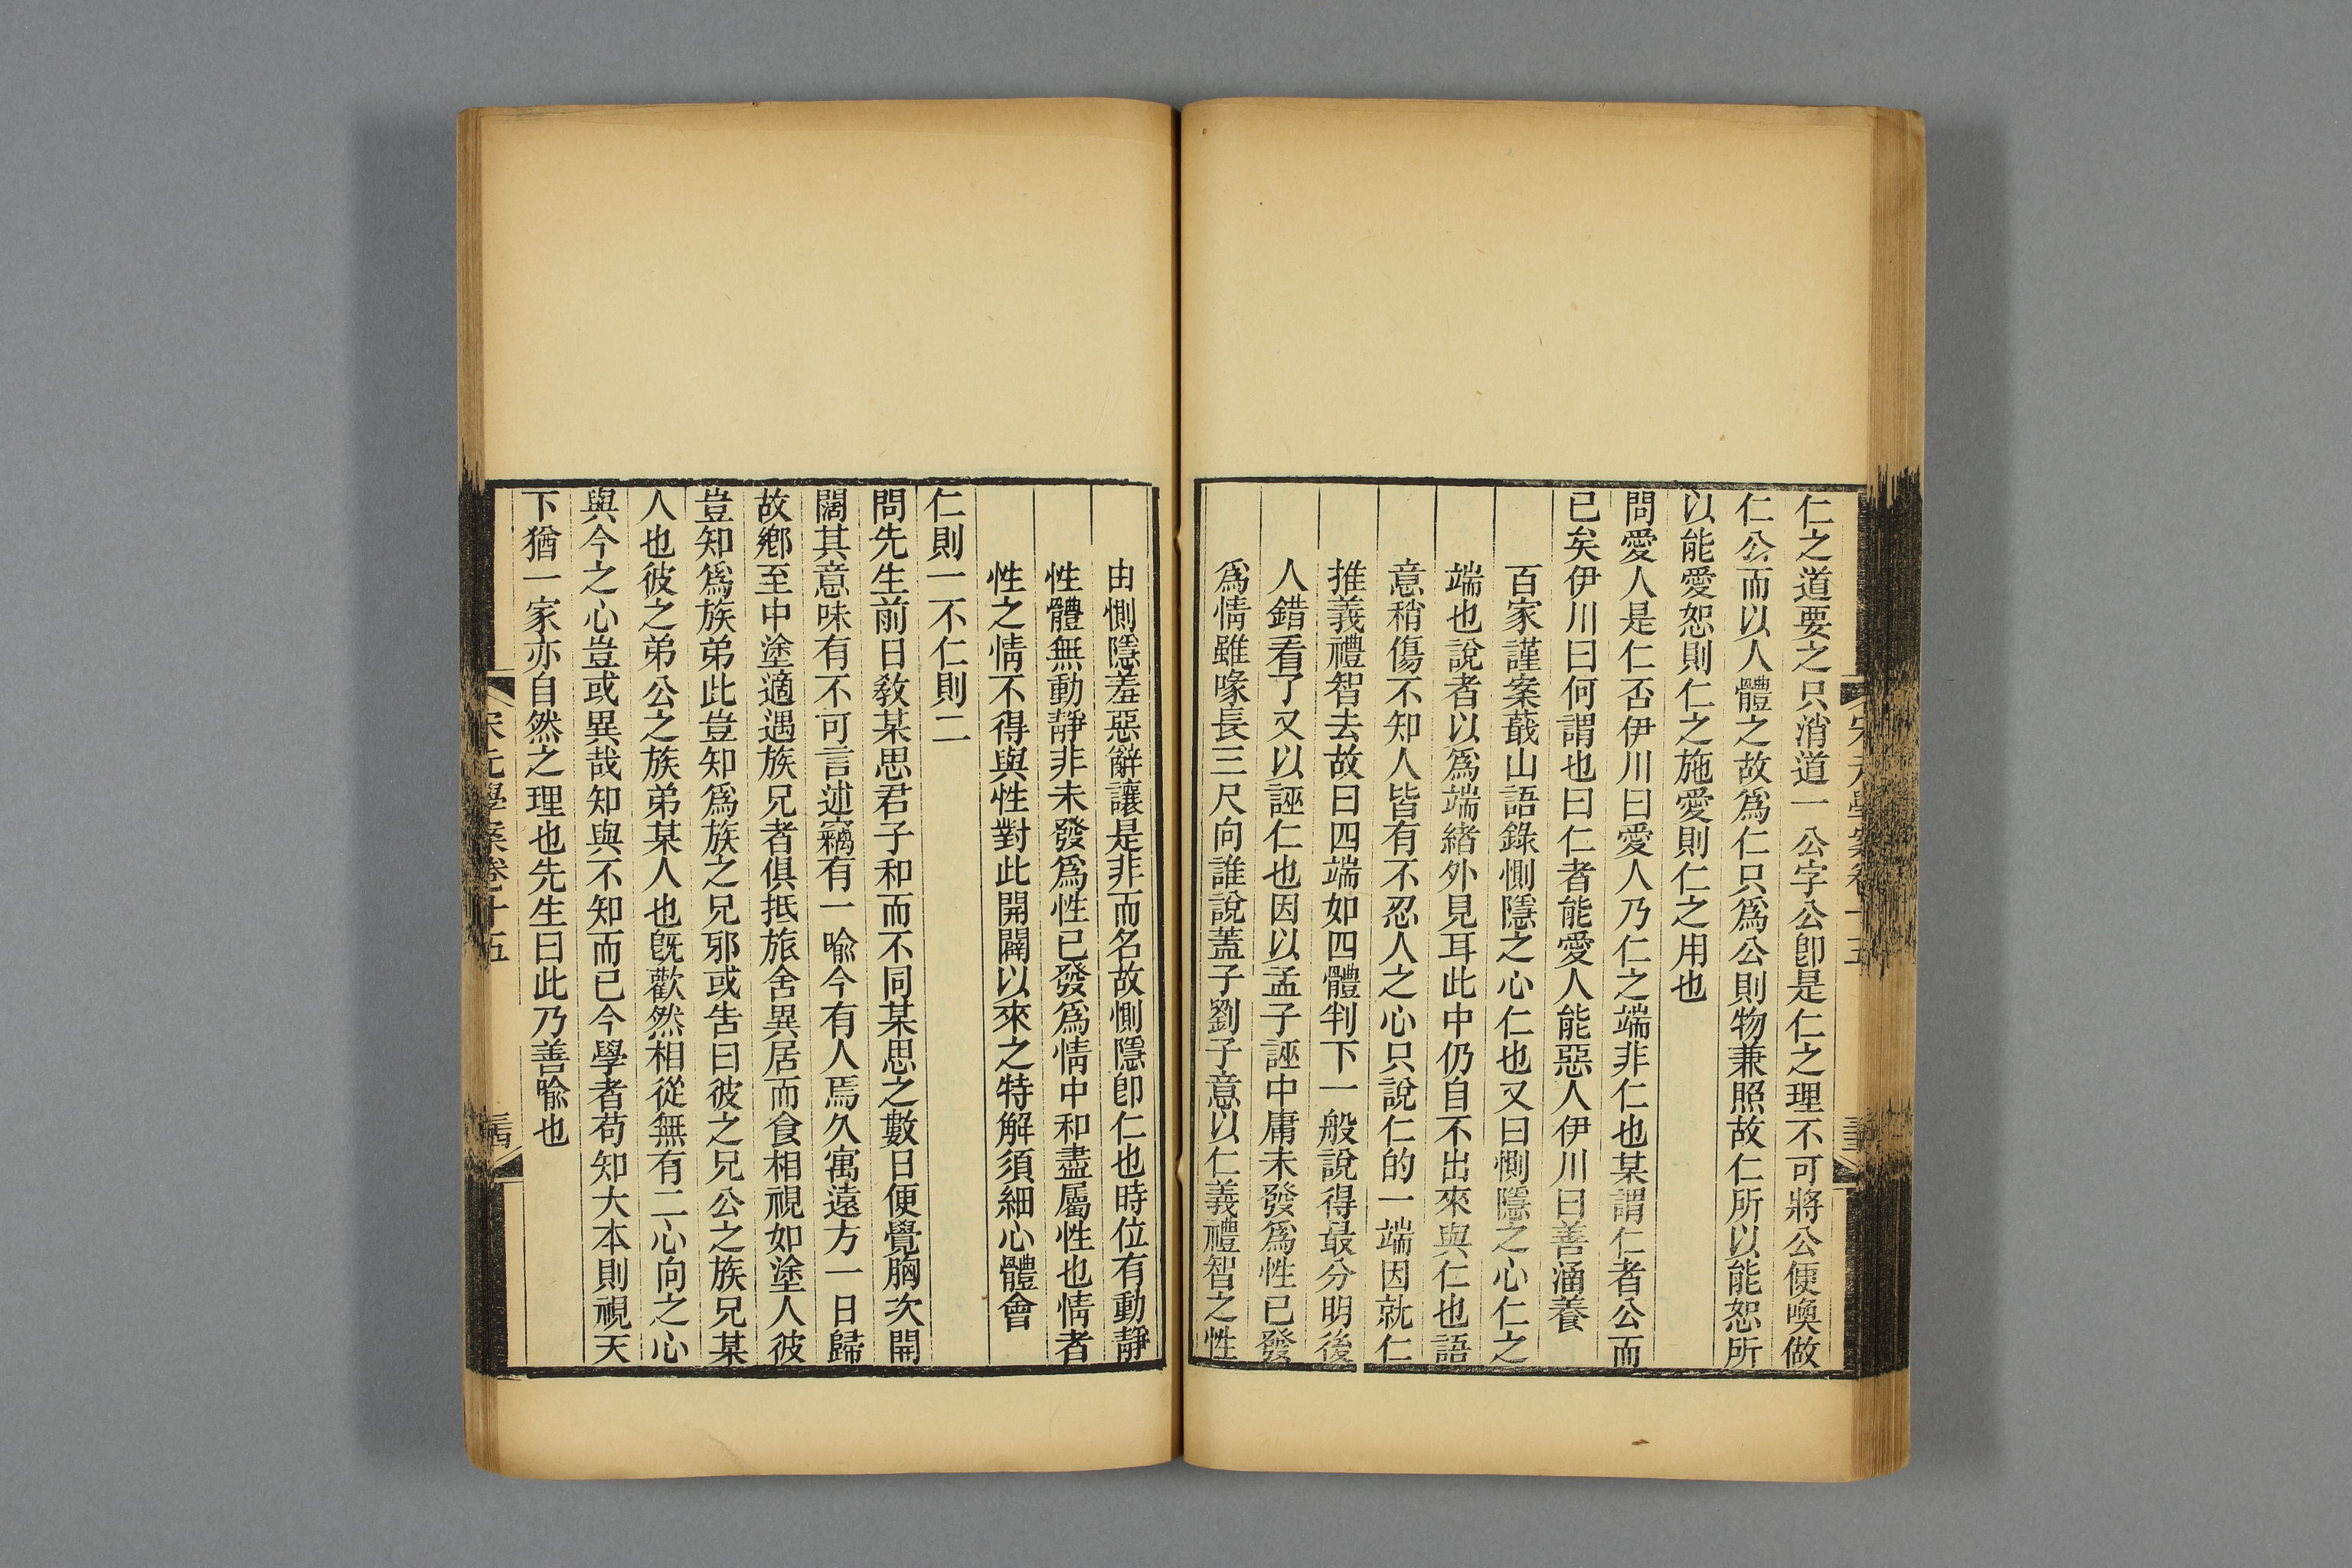 仁之道要之只消道一公字公卽是仁之理不可將公便喚做
仁公而以人體之故爲仁只爲公則物兼照故仁所以能恕所
以能愛恕則仁之施愛則仁之用也
問愛人是仁否伊川曰愛人乃仁之端非仁也某謂仁者公而
已矣伊川曰何謂也曰仁者能愛人能惡人伊川曰善涵養
百家謹案蕺山語錄惻隱之心仁也又曰惻隱之心仁之
端也說者以爲端緖外見耳此中仍自不出來與仁也語
意稍傷不知人皆有不忍人之心只說仁的一端因就仁
推義禮智去故曰四端如四體判下一般說得最分明後
人錯看了又以誣仁也因以孟子誣中庸未發爲性已發
爲情雖喙長三尺向誰說蓋子劉子意以仁義禮智之性
由惻隱羞惡辭讓是非而名故惻隱卽仁也時位有動靜
性體無動靜非未發爲性已發爲情中和盡屬性也情者
性之情不得與性對此開闢以來之特解須細心體會
仁則一不仁則二
問先生前日敎某思君子和而不同某思之數日便覺胸次開
闊其意味有不可言述竊有一喩今有人焉久寓遠方一日歸
故鄉至中塗適遇族兄者俱抵旅舍異居而食相視如塗人彼
豈知爲族弟此豈知爲族之兄邪或吿曰彼之兄公之族兄某
人也彼之弟公之族弟某人也旣歡然相從無有二心向之心
與今之心豈或異哉知與不知而已今學者苟知大本則視天
下猶一家亦自然之理也先生曰此乃善喩也
宋元學案卷十五